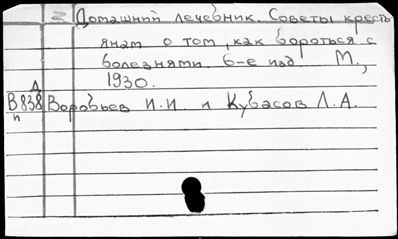 Домашний лечебник. Советы кресть
янам о том, как бороться с
болезнями. 6-е изд М.,
1930.
Д
В838 Воробьев И.И. и Кубасов Л.А.
п